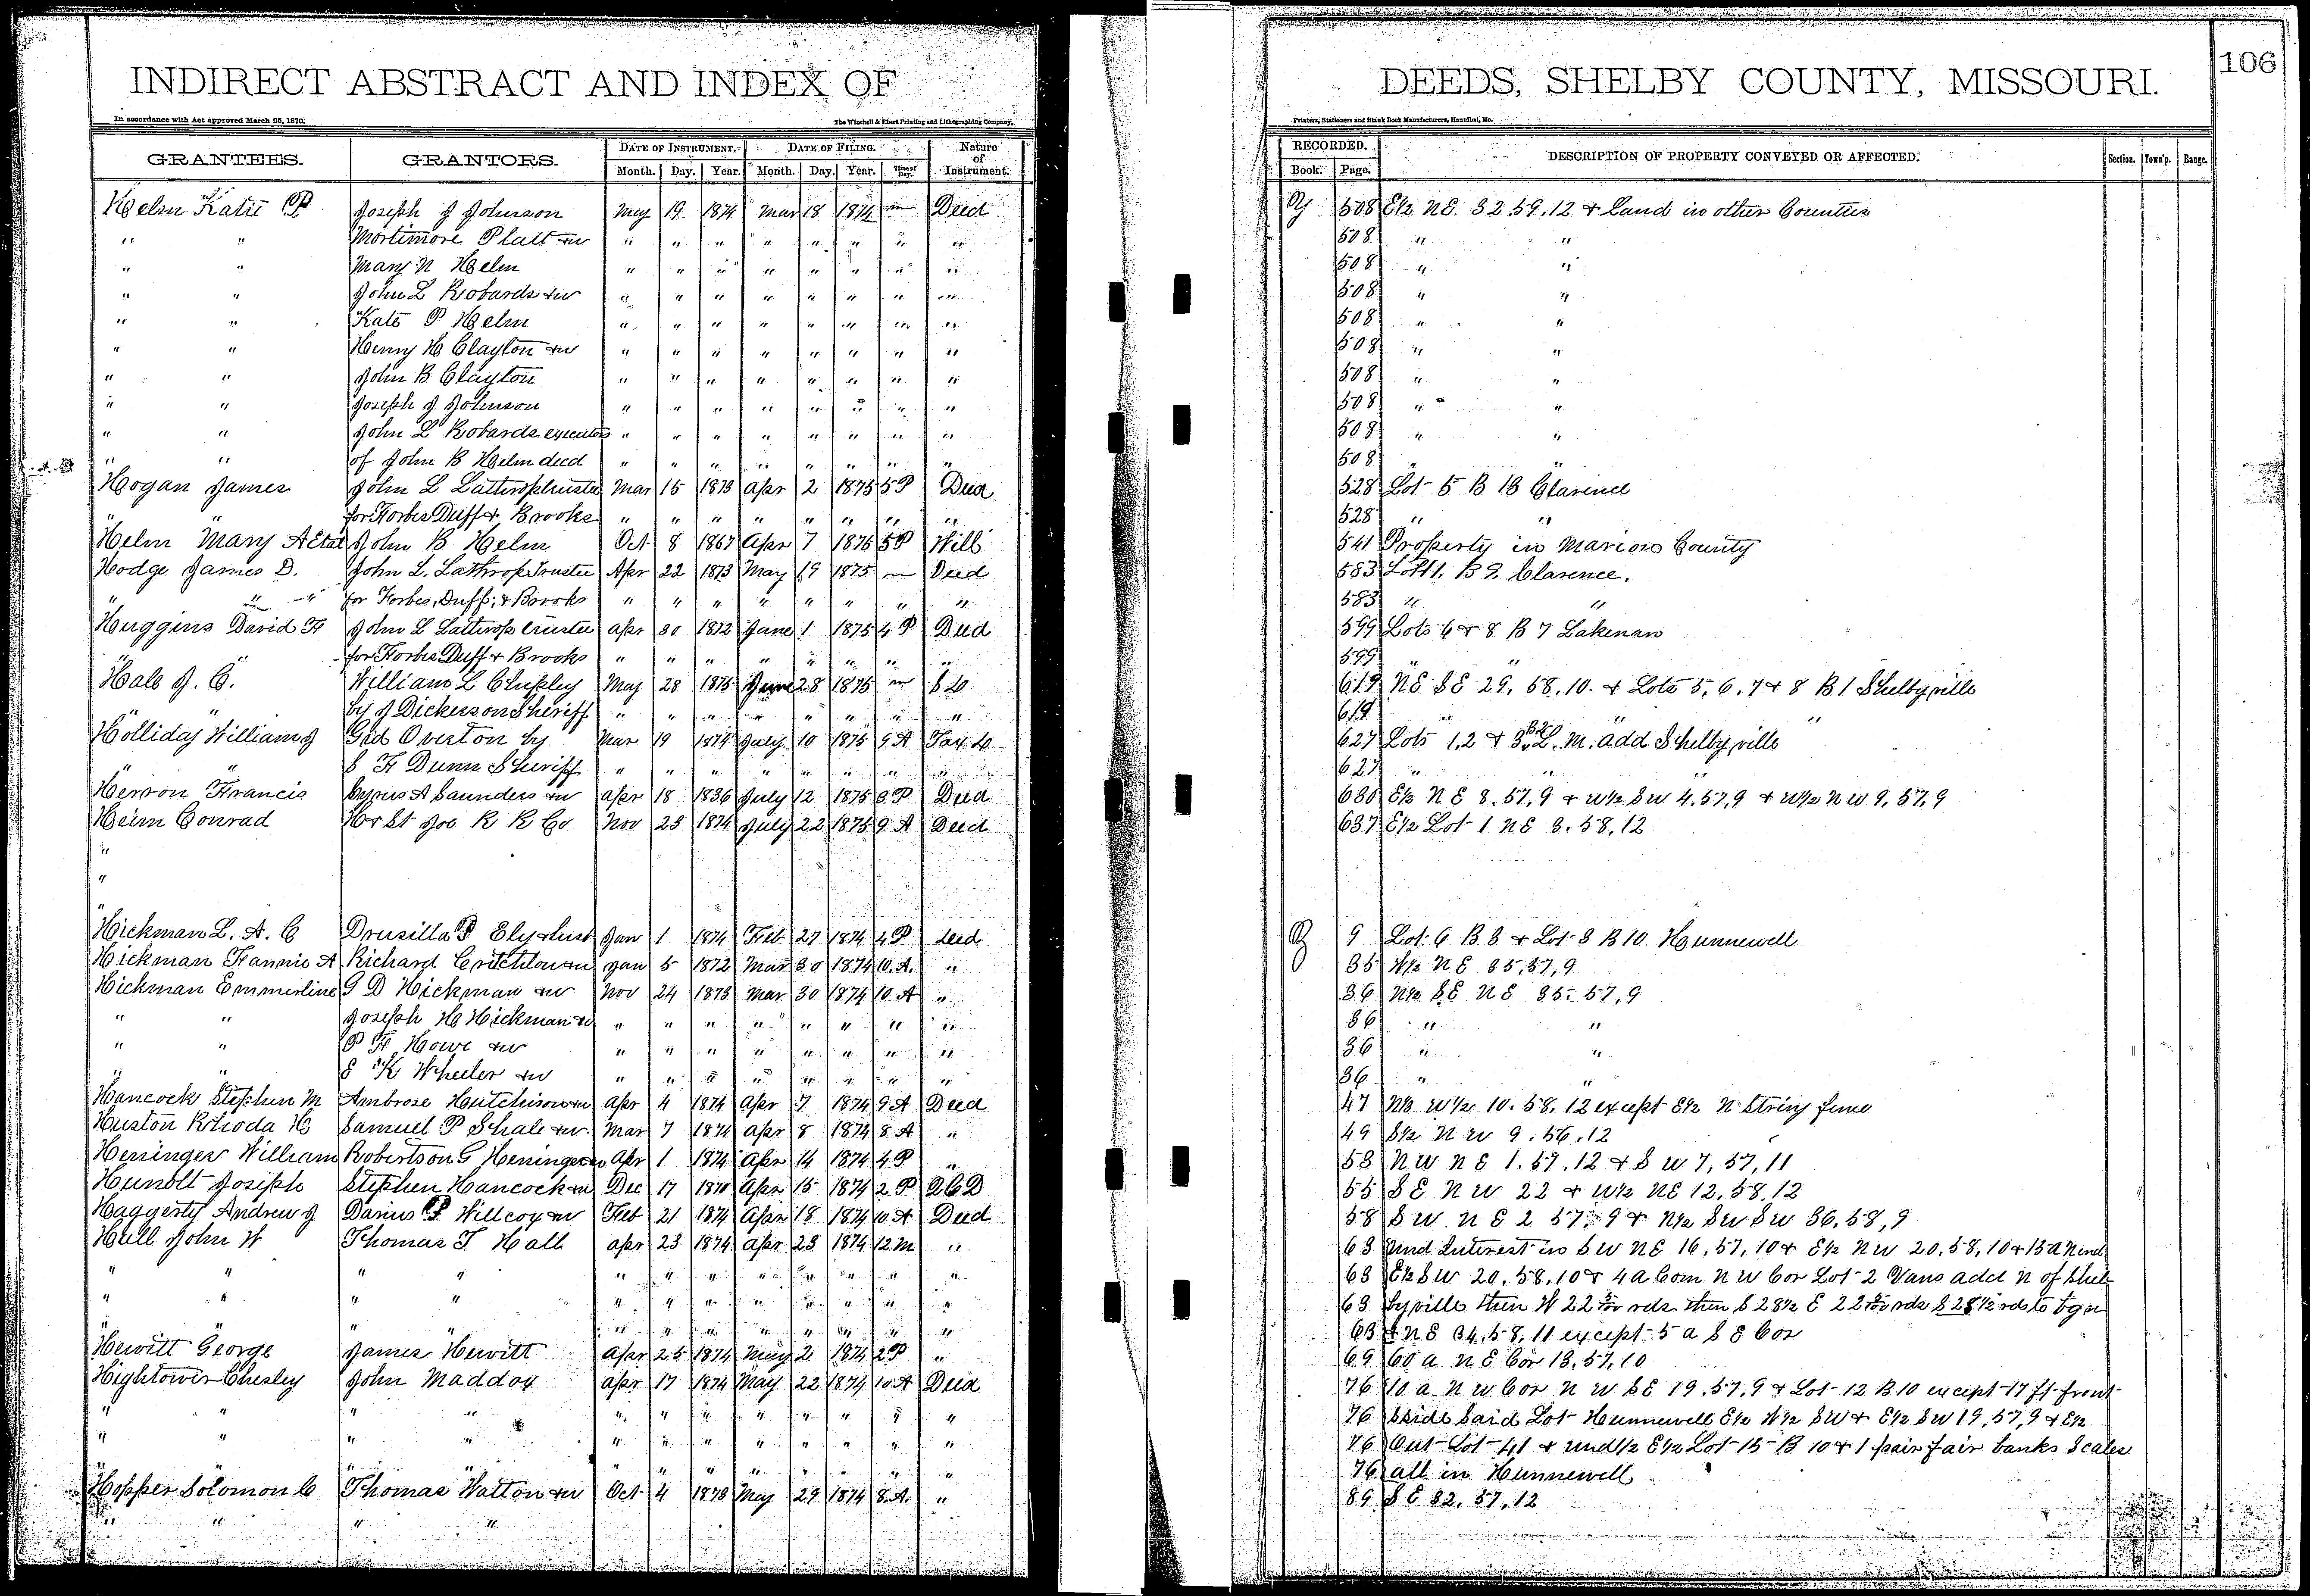 INDIRECT ABSTRACT AND INDEX OF DEEDS, SHELBY COUNTY, MISSOURI. 106
In accordance with Act approved March 25, 1870. The Winchell & Ebert Printing and Lithographing Company, Printers, Stationers and Blank Book Manufacturers, Hannibal, Mo.
GRANTEES. GRANTORS. DATE OF INSTRUMENT. DATE OF FILING. Nature of Instrument. RECORDED. DESCRIPTION OF PROPERTY CONVEYED OR AFFECTED. Section. Town'p. Range.
Month. Day. Year. Month. Day. Year. Time of Day. Book. Page.
Helm Katie P Joseph J Johnson May 19 1874 Mar 18 1874 m Deed Y 508 E½ NE 32.59.12 & Land in other Counties
" " Mortimore Platt &w " " " " " " " " 508 " "
" " Mary N Helm " " " " " " " " 508 " "
" " John L Robards &w " " " " " " " " 508 " "
" " Kate P Helm " " " " " " " " 508 " "
" " Henry H Clayton &w " " " " " " " " 508 " "
" " John B Clayton " " " " " " " " 508 " "
" " Joseph J Johnson " " " " " " " " 508 " "
" " John L Robards executor " " " " " " " " 508 " "
" " of John B Helm decd " " " " " " " " 508 " "
Hogan James John L Lathrop trustee Mar 15 1873 Apr 2 1875 5P Deed 528 Lot 5 B 18 Clarence
" " for Forbes Duff & Brooks " " " " " " " " 528 " "
Helm Mary A Etal John B Helm Oct 8 1867 Apr 7 1875 5P Will 541 Property in Marion County
Hodge James D. John L. Lathrop Trustee Apr 22 1873 May 19 1875 m Deed 583 Lot 11. B 9. Clarence.
" " for Forbes, Duff, & Brooks " " " " " " " " 583 " "
Huggins David H John L Lathrop trustee Apr 30 1872 June 1 1875 4P Deed 599 Lots 6 & 8 B 7 Lakenan
" " for Forbes Duff & Brooks " " " " " " " " 599 " "
Hale J. C. William L Chipley May 28 1875 June 28 1875 m S D 619 NE SE 29. 58. 10. & Lots 5, 6, 7 & 8 B 1 Shelbyville
" " by J Dickerson Sheriff " " " " " " " " 619 " "
Holliday William J Gid Overton by Mar 19 1874 July 10 1875 9A Tax D 627 Lots 1, 2 & 3 B2 L. M. add Shelbyville
" " S F Dunn Sheriff " " " " " " " " 627 " "
Herron Francis Cyrus A Saunders &w Apr 18 1836 July 12 1875 3P Deed 630 E½ NE 8.57,9 & W½ SW 4,57,9 & W½ NW 9,57,9
Heim Conrad H & St Joe R R Co Nov 23 1874 July 22 1875 9A Deed 637 E½ Lot 1 NE 3.58,12
"
"
"
Hickman L. A. C Drusilla P Ely & husb Jan 1 1874 Feb 27 1874 4P Deed Z 9 Lot 6 B 8 & Lot 8 B 10 Hunnewell
Hickman Fannie A Richard Critchlow &w Jan 5 1872 Mar 30 1874 10.A. " 35 W½ NE 35,57,9
Hickman Emmerline G D Hickman &w Nov 24 1873 Mar 30 1874 10.A " 36 N½ SE NE 35.57,9
" " Joseph H Hickman &w " " " " " " " " 36 " "
" " P F Howe &w " " " " " " " " 36 " "
" " E K Wheeler &w " " " " " " " " 36 " "
Hancock Stephen M Ambrose Hutchison &w Apr 4 1874 Apr 7 1874 9A Deed 47 N½ W½ 10.58.12 except E½ N String fence
Huston Rhoda H Samuel P Shale &w Mar 7 1874 Apr 8 1874 8A " 49 S½ NW 9.56.12
Heninger William Robertson G Heninger &w Apr 1 1874 Apr 14 1874 4P " 53 NW NE 1.57.12 & SW 7,57,11
Hunolt Joseph Stephen Hancock &w Dec 17 1870 Apr 15 1874 2P Q C D 55 SE NW 22 & W½ NE 12,58,12
Haggerty Andrew J Darius P Willcox &w Feb 21 1874 Apr 18 1874 10A Deed 58 SW NE 2 57.9 & N½ SW SW 36,58,9
Hall John W Thomas T Hall Apr 23 1874 Apr 23 1874 12m " 63 und Interest in SW NE 16,57,10 & E½ NW 20,58,10 & 15 a N end
" " " " " " " " " " " " 63 E½ SW 20.58.10 & 4 a Com NW Cor Lot 2 Vans add N of Shel-
" " " " " " " " " " " " 63 byville then W 22 rds then S 28½ E 22 rds S 28½ rds to bgn
" " " " " " " " " " " " 63 & NE 34.58,11 except 5 a SE Cor
Hewitt George James Hewitt Apr 25 1874 May 2 1874 2P " 69 60 a NE Cor 13,57,10
Hightower Chesley John Maddox Apr 17 1874 May 22 1874 10A Deed 76 10 a NW Cor NW SE 19.57,9 & Lot 12 B 10 except 17 ft front
" " " " " " " " " " " " 76 Side Said Lot Hunnewell E½ W½ SW & E½ SW 19,57,9 & E½
" " " " " " " " " " " " 76 Out Lot 41 & und½ E½ Lot 15 B 10 & 1 pair fair banks Scales
" " " " " " " " " " " " 76 all in Hunnewell
Hopper Solomon C Thomas Watton &w Oct 4 1873 May 29 1874 8.A. " 89 SE 32.57,12
" " " "